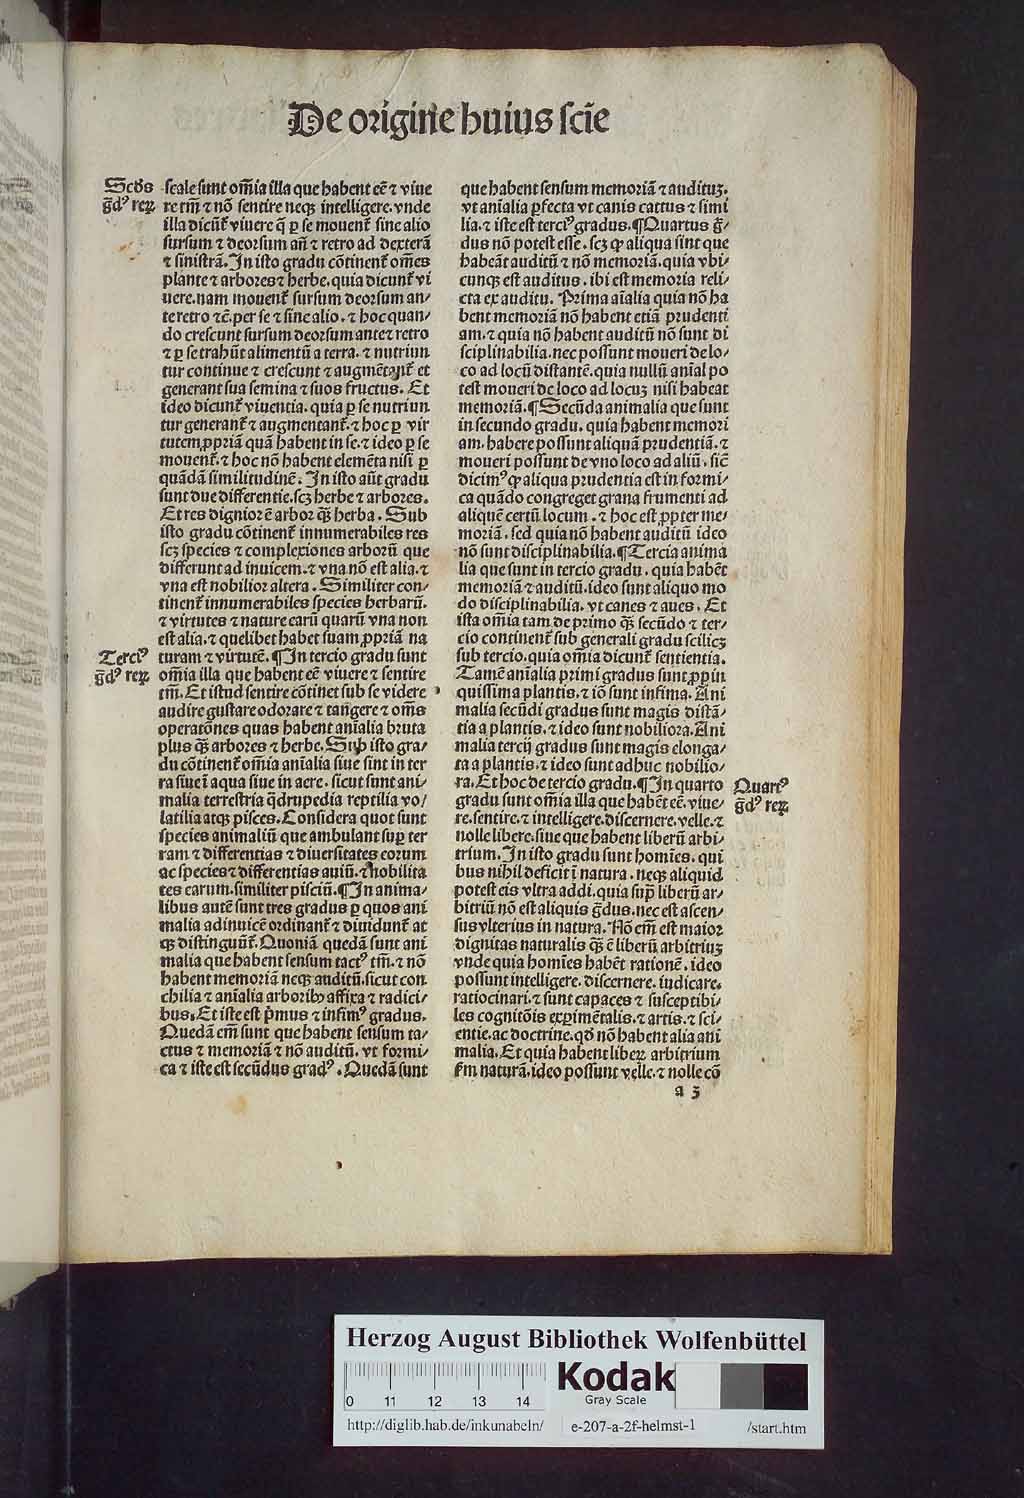 De origine huius scīe
Scd̄s
gͣdꝰ reꝝ
scale sunt om̄ia illa que habent eē ⁊ viue
re tm̄ ⁊ nō sentire neqꝫ intelligere. vnde
illa dicūt᷑ viuere q̄ ꝑ se mouent᷑ sine alio
sursum ⁊ deorsum an̄ ⁊ retro ad dexterā
⁊ sinistrā. In isto gradu cōtinent᷑ om̄es
plante ⁊ arbores ⁊ herbe. quia dicunt᷑ vi
uere. nam mouent᷑ sursum deorsum an/
te retro ⁊ cē. per se ⁊ sine alio. ⁊ hoc quan/
do crescunt sursum deorsum ante ⁊ retro
⁊ ꝑ se trahūt alimentū a terra. ⁊ nutriun
tur continue ⁊ crescunt ⁊ augmētant᷑ et
generant sua semina ⁊ suos fructus. Et
ideo dicunt᷑ viuentia. quia ꝑ se nutriun
tur generant᷑ ⁊ augmentant᷑. ⁊ hoc ꝑ vir
tutem ꝓpriā quā habent in se. ⁊ ideo ꝑ se
mouent᷑. ⁊ hoc nō habent elemēta nisi ꝑ
quādā similitudinē. In isto aūt gradu
sunt due differentie. scꝫ herbe ⁊ arbores.
Et res dignior ē arbor qꝫ̄ herba. Sub
isto gradu cōtinent᷑ innumerabiles res
scꝫ species ⁊ complexiones arborū que
differunt ad inuicem. ⁊ vna nō est alia. ⁊
vna est nobilior altera. Similiter con/
tinent᷑ innumerabiles species herbarū.
⁊ virtutes ⁊ nature earū quarū vna non
est alia. ⁊ quelibet habet suam ꝓpriā na
Terciꝰ
gͣdꝰ reꝝ
turam ⁊ virtutē. ¶In tercio gradu sunt
om̄ia illa que habent eē viuere ⁊ sentire
tm̄. Et istud sentire cōtinet sub se videre
audire gustare odorare ⁊ tangere ⁊ om̄s
operatōnes quas habent an̄ialia bruta
plus qꝫ̄ arbores ⁊ herbe. Sub isto gra/
du cōtinent᷑ om̄ia an̄ialia siue sint in ter
ra siue ī aqua siue in aere. sicut sunt ani/
malia terrestria q̄drupedia reptilia vo/
latilia atqꝫ pisces. Considera quot sunt
species animaliū que ambulant suꝑ ter
ram ⁊ differentias ⁊ diuersitates eorum
ac species ⁊ differentias auiū. ⁊ nobilita
tes earum. similiter pisciū. ¶In anima/
libus autē sunt tres gradus ꝑ quos ani
malia adinuicē ordinant᷑ ⁊ diuidunt᷑ at
qꝫ distinguūt᷑. Quoniā quedā sunt ani
malia que habent sensum tactꝰ tm̄. ⁊ nō
habent memoriā neqꝫ auditū. sicut con
chilia ⁊ an̄ialia arboribꝰ affixa ⁊ radici/
bus. Et iste est pͥmus ⁊ infimꝰ gradus.
Quedā em̄ sunt que habent sensum ta/
ctus ⁊ memoriā ⁊ nō auditū. vt formi/
ca ⁊ iste est secūdus gradꝰ. Quedā sunt
que habent sensum memoriā ⁊ audituꝫ.
vt an̄ialia ꝑfecta vt canis cattus ⁊ simi
lia. ⁊ iste est terciꝰ gradus. ¶Quartus gͣ/
dus nō potest esse. scꝫ ꝙ aliqua sint que
habeāt auditū ⁊ nō memoriā. quia vbi/
cunqꝫ est auditus. ibi est memoria reli/
cta ex auditu. Prima aīalia quia nō ha
bent memoriā nō habent etiā prudenti
am. ⁊ quia nō habent auditū nō sunt di
sciplinabilia. nec possunt moueri de lo/
co ad locū distantē. quia nullū anīal po
test moueri de loco ad locuꝫ nisi habeat
memoriā. ¶Secūda animalia que sunt
in secundo gradu. quia habent memori
am. habere possunt aliquā prudentiā. ⁊
moueri possunt de vno loco ad aliū. sic̄
dicimꝰ ꝙ aliqua prudentia est in formi/
ca quādo congreget grana frumenti ad
aliquē certū locum. ⁊ hoc est ꝓpter me/
moriā. sed quia nō habent auditū ideo
nō sunt disciplinabilia. ¶Tercia anima
lia que sunt in tercio gradu. quia habēt
memoriā ⁊ auditū. ideo sunt aliquo mo
do disciplinabilia. vt canes ⁊ aues. Et
ista om̄ia tam de primo qꝫ̄ secūdo ⁊ ter/
cio continent᷑ sub generali gradu scilicꝫ
sub tercio. quia om̄ia dicunt᷑ sentientia.
Tamē an̄ialia primi gradus sunt ꝓpin
quissima plantis. ⁊ iō sunt infima. Ani
malia secūdi gradus sunt magis distā/
tia a plantis. ⁊ ideo sunt nobiliora. Ani
malia tercij gradus sunt magis elonga/
ta a plantis. ⁊ ideo sunt adhuc nobilio/
ra. Et hoc de tercio gradu. ¶In quarto
Quartꝰ
gͣdꝰ reꝝ
gradu sunt om̄ia illa que habēt eē. viue/
re. sentire. ⁊ intelligere. discernere. velle. ⁊
nolle libere. siue que habent liberū arbi/
trium. In isto gradu sunt homīes. qui
bus nihil deficit ī natura. neqꝫ aliquid
potest eis vltra addi. quia supͣ liberū ar/
bitriū nō est aliquis gͣdus. nec est ascen/
sus vlterius in natura. Nō em̄ est maior
dignitas naturalis qꝫ̄ ē liberū arbitriuꝫ
vnde quia homīes habēt rationē. ideo
possunt intelligere. discernere. iudicare.
ratiocinari. ⁊ sunt capaces ⁊ susceptibi/
les cognitōis exꝑimētalis. ⁊ artis. ⁊ sci/
entie. ac doctrine. qd̄ nō habent alia ani
malia. Et quia habent liberꝝ arbitrium
sm̄ naturā. ideo possunt velle. ⁊ nolle cō
a 3
Herzog August Bibliothek Wolfenbüttel
0 11 12 13 14
Kodak
Gray Scale
http://diglib.hab.de/inkunabeln/ e-207-a-2f-helmst-1 /start.htm